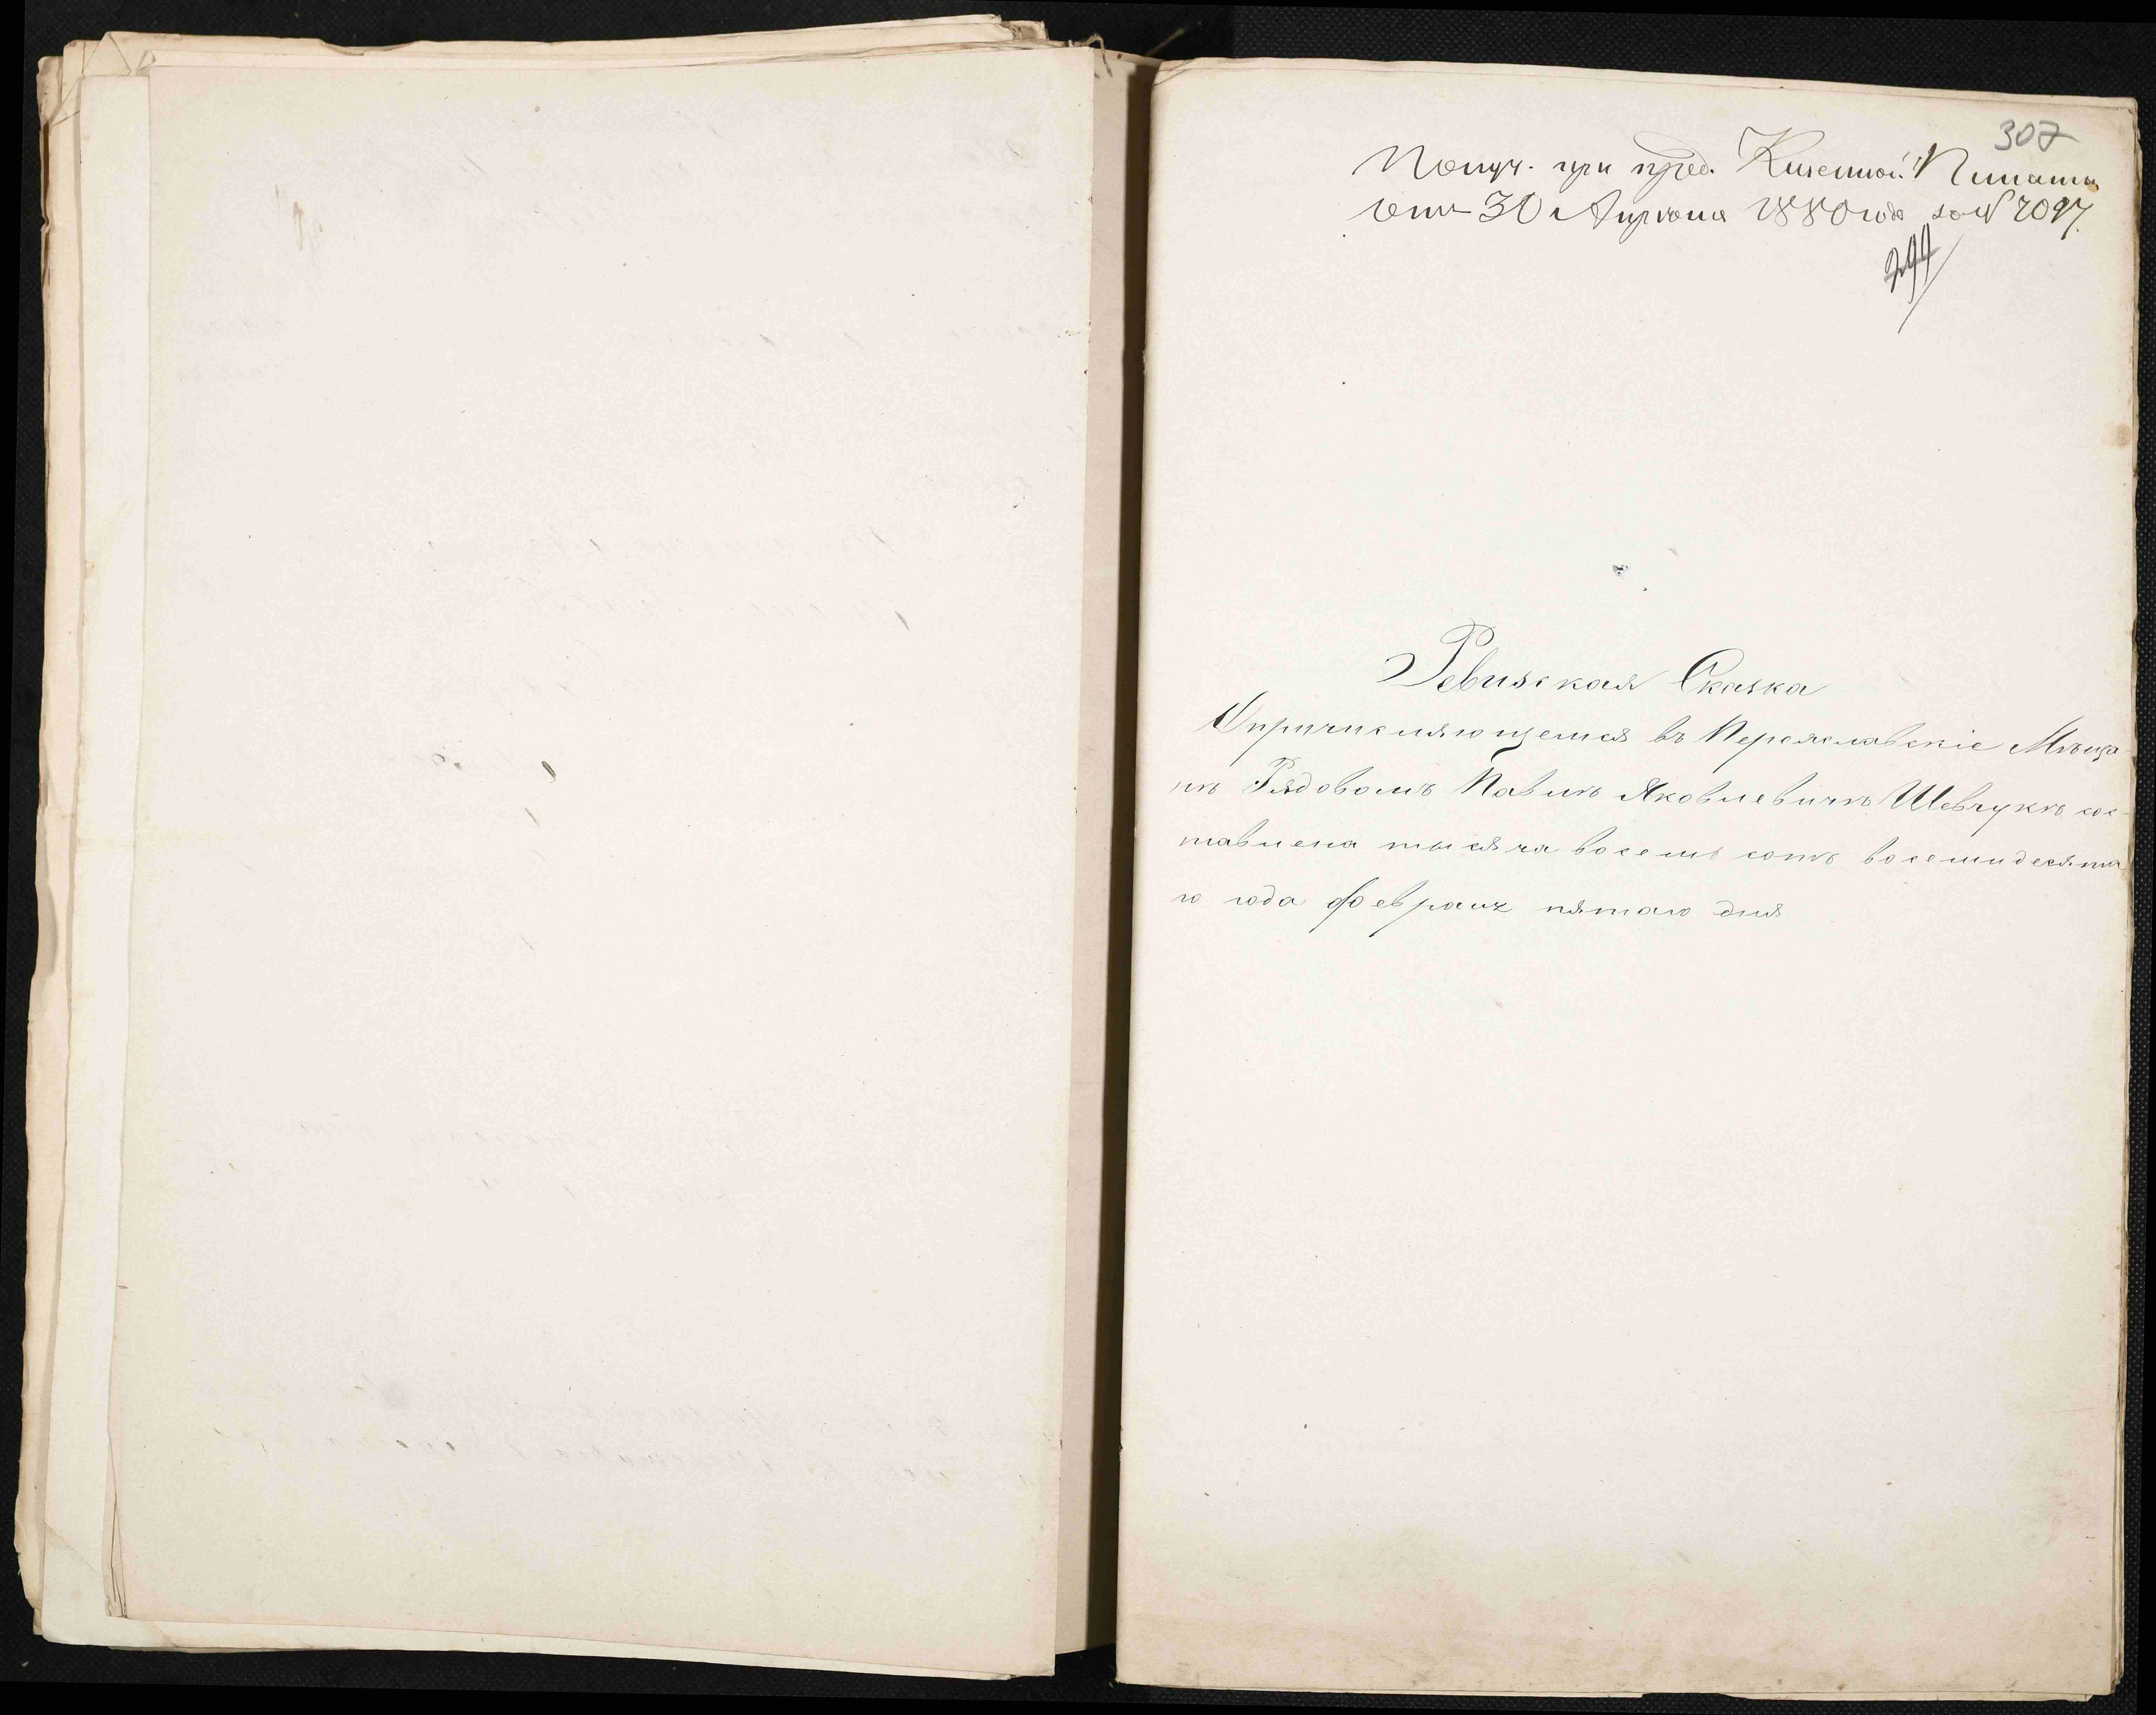 307
Получ. при пред. Казенной Палаты
отъ 30 Апрѣля 1880 года за № 7097.
299
Ревизская Сказка
О причисляющемся въ Переяславскіе Мѣща-
не Рядовомъ Павлѣ Яковлевичѣ Шевчукѣ сос-
тавлена тысяча восемь сотъ восемидесята
го года февраля пятаго дня